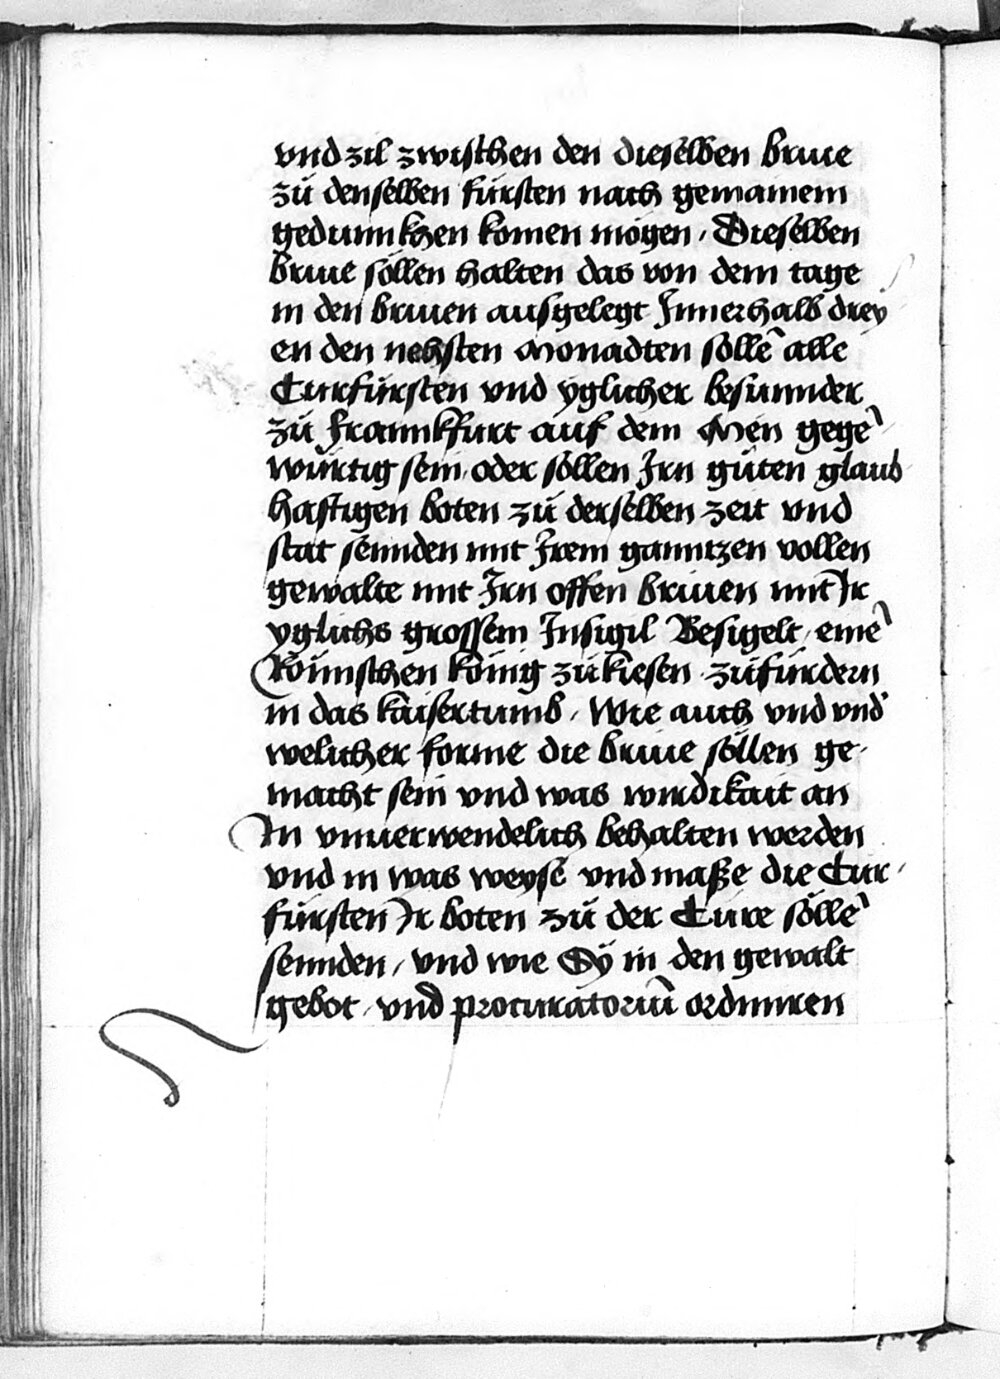 vnd zil zwischen den dieselben briue
zů denselben fürsten nach gemainem
gedunnkhen komen mögen / Dieselben
briue söllen halten das von dem tage
in den briuen ausgelegt Innerhalb drey
en den nehsten Monadten söllē alle
Curfürsten vnd yglicher besunnder
zů Frannkfurt auf dem Men gegē
würtig sein / oder söllen Irn gůten glaub
hafftigen boten zů derselben zeit vnd
stat sennden mit Irem ganntzen vollen
gewalte mit Irn offen briuen mit Ir
yglichs grossem Insigil Besigelt / einē
Römischen König zůkiesen / zůfürdern
in das kaisertumb / Wie auch vnd vnd'
welicher forme die briue söllen ge
macht sein vnd was wirdikait an
In vnuerwendelich behalten werden
vnd in was weyse vnd maße die Cur
fürsten Ir boten zů der Cure söllē
sennden / vnd wie Sÿ in den gewalt
gebot / vnd procuratoriū ordnnren